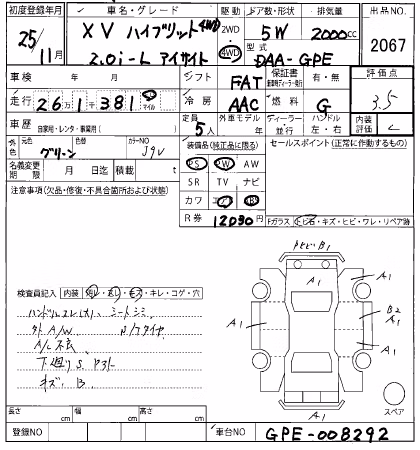 初度登録年月 車名・グレード 駆動 ドア数・形状 排気量 出品NO
25/11月 XV ハイブリット 4WD 2WD 5W 2000cc
2.0i-L アイサイト 4WD 型式 DAA-GPE 2067
車検 年 月 シフト FAT 保証書 有・無 評価点
走行 26万1千381 マイル 冷房 AAC 燃料 G 3.5
車歴 自家用・レンタ・事業用( ) 定員 5人 外車モデル 年 ディーラー 並行 ハンドル 左・右 内装評価 C
外色 元色 グリーン 色替 カラーNO J9V
装備品(純正品に限る) セールスポイント(正常に作動するもの)
名義変更期限 月 日迄 積載 t
PS PW AW
SR TV ナビ
カワ
R券 12030円
注意事項(欠品・修復・不具合箇所および状態)
Fガラス トビ石・キズ・ヒビ・ワレ・リペア跡
トビ・B1
A1
A1
A1
A1
B2
A1
A1
A1
A1
スペア
検査員記入 内装 汚レ・キレ・コゲ・穴
ハンドルスレ(大)、シートシミ
外A/W
A/C
下廻りS
キズ、B
長さ cm 幅 cm 高さ cm
登録NO 車台NO GPE-008292